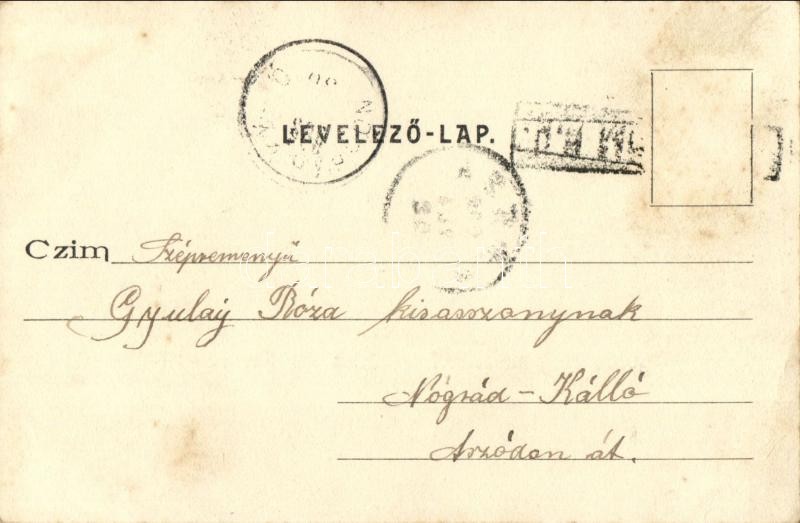 LEVELEZŐ-LAP.
Czim Szépreményű
Gyulay Róza kisasszonynak
Nógrád-Kálló
Aszódon át.